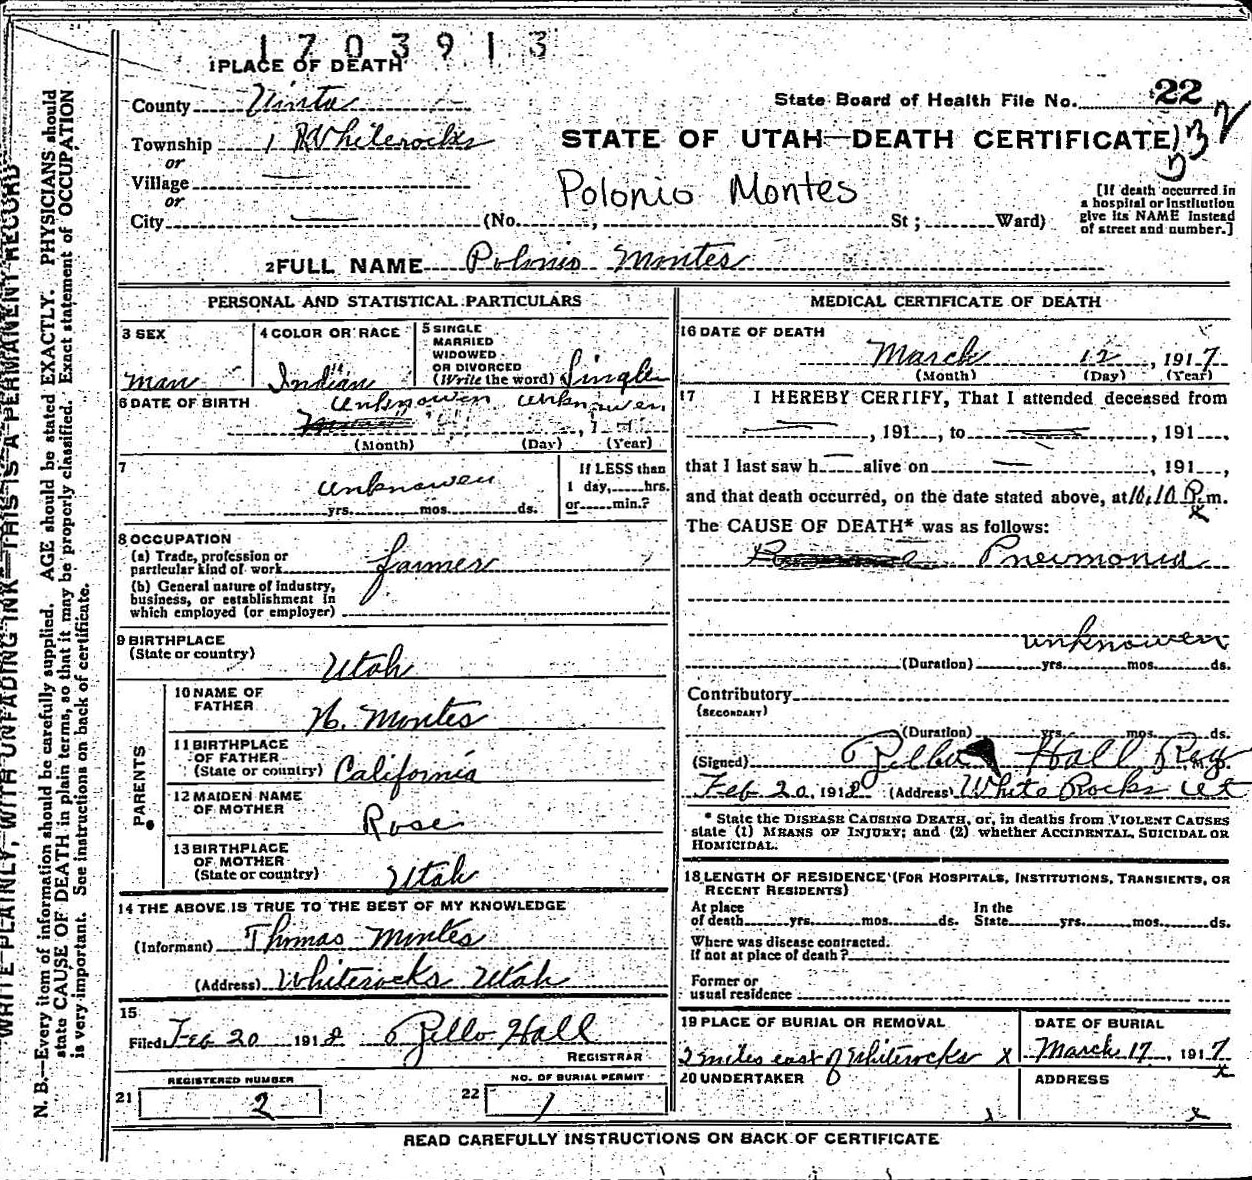 1703913
1 PLACE OF DEATH
County Uinta
State Board of Health File No. 22
Township 1 RWhiterocks
STATE OF UTAH—DEATH CERTIFICATE
32
or
Village
or
Polonio Montes
[If death occurred in
a hospital or institution
give its NAME instead
of street and number.]
City (No. , St ; Ward)
2 FULL NAME Polonio Montes
PERSONAL AND STATISTICAL PARTICULARS
3 SEX
man
4 COLOR OR RACE
Indian
5 SINGLE
MARRIED
WIDOWED
OR DIVORCED
(Write the word) Single
6 DATE OF BIRTH unknowen unknowen
(Month) (Day) , 1 (Year)
7
unknowen
yrs. mos. ds.
If LESS than
1 day, hrs.
or min.?
8 OCCUPATION
(a) Trade, profession or
particular kind of work farmer
(b) General nature of industry,
business, or establishment in
which employed (or employer)
9 BIRTHPLACE
(State or country)
Utah
PARENTS
10 NAME OF
FATHER
N. Montes
11 BIRTHPLACE
OF FATHER
(State or country) California
12 MAIDEN NAME
OF MOTHER
Rose
13 BIRTHPLACE
OF MOTHER
(State or country) Utah
14 THE ABOVE IS TRUE TO THE BEST OF MY KNOWLEDGE
(Informant) Thomas Montes
(Address) Whiterocks Utah
15
Filed Feb 20 1918 Rello Hall
REGISTRAR
21 REGISTERED NUMBER
2
22 NO. OF BURIAL PERMIT
1
MEDICAL CERTIFICATE OF DEATH
16 DATE OF DEATH
March 12 , 1917
(Month) (Day) (Year)
17 I HEREBY CERTIFY, That I attended deceased from
, 191 , to , 191 ,
that I last saw h alive on , 191 ,
and that death occurred, on the date stated above, at 10.10 P.m.
x
The CAUSE OF DEATH* was as follows:
Pneumonia
unknowen
(Duration) yrs. mos. ds.
Contributory
(SECONDARY)
(Duration) yrs. mos. ds.
(Signed) Rello Hall Reg.
Feb 20, 1918 (Address) White Rocks Ut
* State the DISEASE CAUSING DEATH, or, in deaths from VIOLENT CAUSES
state (1) MEANS OF INJURY; and (2) whether ACCIDENTAL, SUICIDAL OR
HOMICIDAL.
18 LENGTH OF RESIDENCE (FOR HOSPITALS, INSTITUTIONS, TRANSIENTS, OR
RECENT RESIDENTS)
At place
of death yrs. mos. ds.
In the
State yrs. mos. ds.
Where was disease contracted.
If not at place of death?
Former or
usual residence
19 PLACE OF BURIAL OR REMOVAL
2 miles east of Whiterocks x
DATE OF BURIAL
March 17, 1917
x
20 UNDERTAKER
ADDRESS
x
READ CAREFULLY INSTRUCTIONS ON BACK OF CERTIFICATE
WRITE PLAINLY, WITH UNFADING INK—THIS IS A PERMANENT RECORD
N. B.—Every item of information should be carefully supplied. AGE should be stated EXACTLY. PHYSICIANS should
state CAUSE OF DEATH in plain terms, so that it may be properly classified. Exact statement of OCCUPATION
is very important. See instructions on back of certificate.